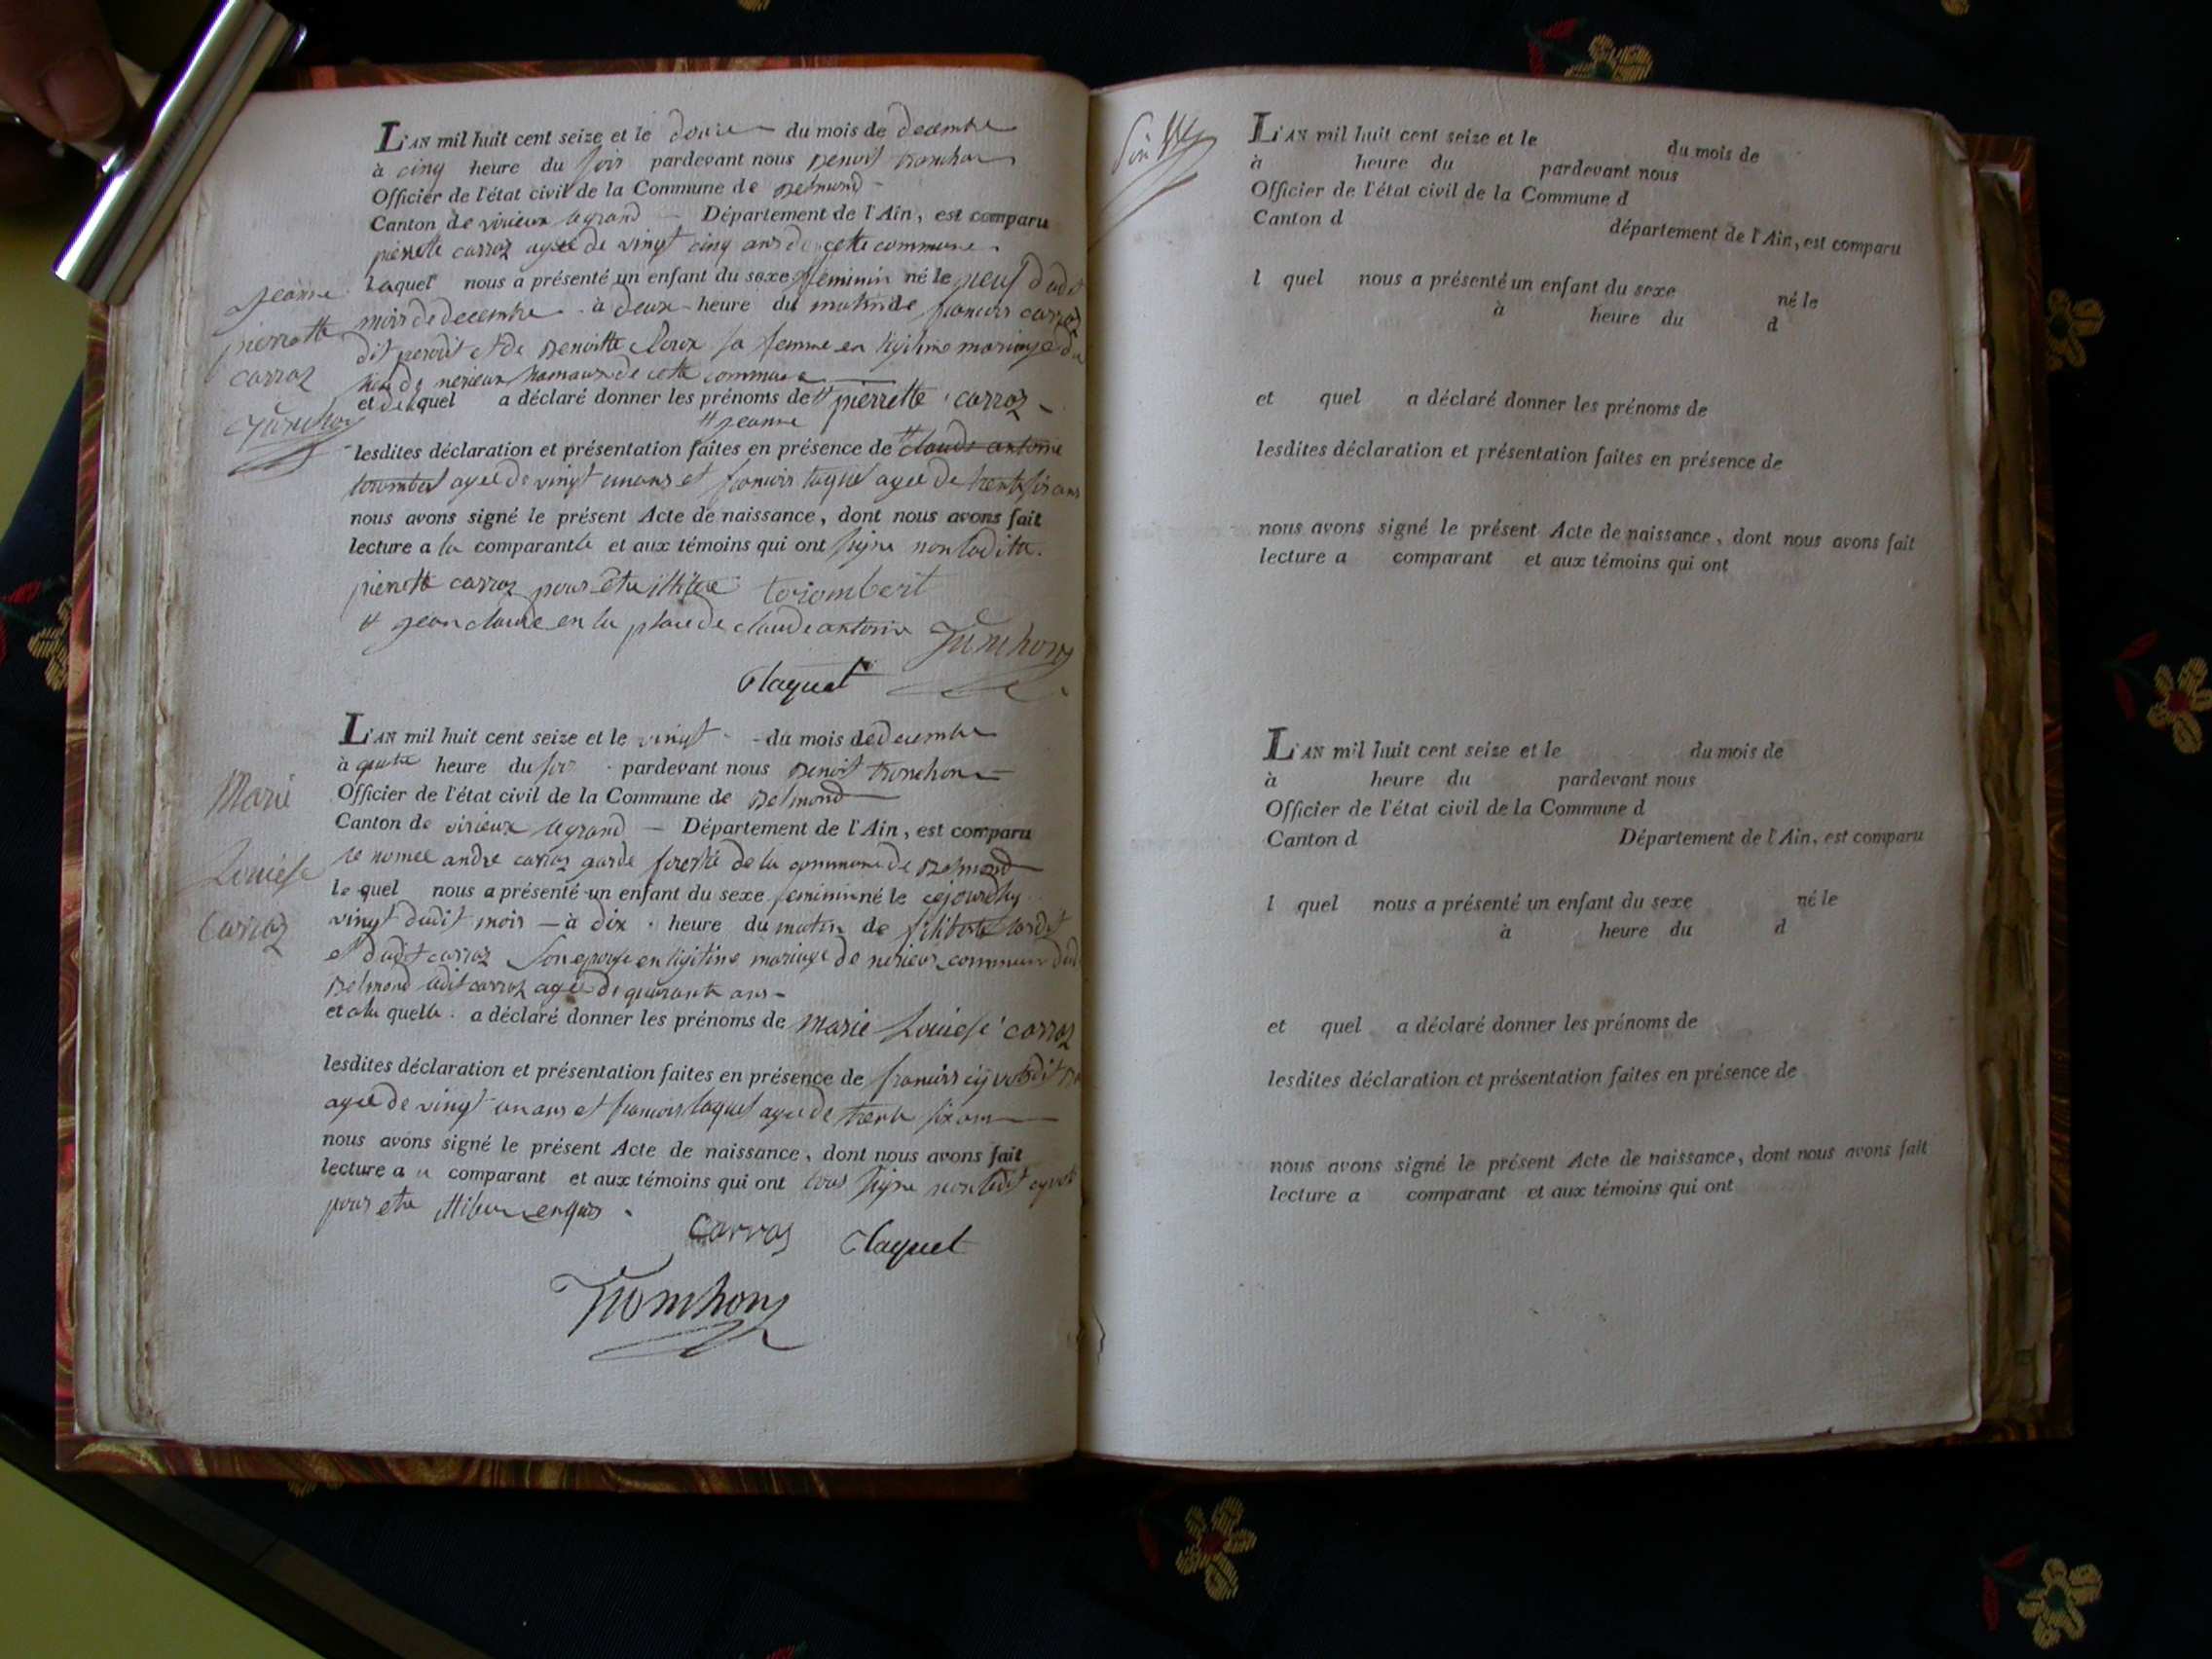 L'AN mil huit cent seize et le douze du mois de decembre
à cinq heure du soir pardevant nous Benoit tronchon
Officier de l'état civil de la Commune de Belmond
Canton de virieux legrand Département de l'Ain, est comparu
pierrette carroz agée de vingt cinq ans de cette commune
Jeanne
pierrette
carroz
Tronchon
laquel nous a présenté un enfant du sexe feminin né le neuf dudit
mois de decembre à deux heure du matin de francois carroz
dit et de Benoitte sa femme en legitime mariage du
de nerieux hamaux de cette commune
et de laquel a déclaré donner les prénoms de # pierrette carroz
# jeanne
lesdites déclaration et présentation faites en présence de # claude antoine
agee de vingt un ans et francois taquet agee de trente six ans
nous avons signé le présent Acte de naissance, dont nous avons fait
lecture a la comparante et aux témoins qui ont signe non laditte
pierrette carroz pour etre illitere toriombert
# jean claude en la place de claude antoine Tronchon
Claquet
L'AN mil huit cent seize et le vingt du mois de decembre
à quatre heure du soir pardevant nous Benoit tronchon
Officier de l'état civil de la Commune de Belmond
Canton de virieux legrand Département de l'Ain, est comparu
Marie
Louiese
Carroz
le nomee andre carroz garde foretié de la commune de Belmond
le quel nous a présenté un enfant du sexe feminin né le cejourdhuy
vingt dudit mois à dix heure du matin de
et dudit carroz son epouse en legitime mariage de nerieux commune
Belmond ledit carroz agée de quarante ans
et a la quelle a déclaré donner les prénoms de Marie Louiese carroz
lesdites déclaration et présentation faites en présence de francois
agee de vingt un ans et francois taquet agee de trente six ans
nous avons signé le présent Acte de naissance, dont nous avons fait
lecture a u comparant et aux témoins qui ont tous signe non ledit
pour etre
Carroz Claquet
Tronchon
L'AN mil huit cent seize et le du mois de
à heure du pardevant nous
Officier de l'état civil de la Commune d
Canton d département de l'Ain, est comparu
l quel nous a présenté un enfant du sexe né le
à heure du d
et quel a déclaré donner les prénoms de
lesdites déclaration et présentation faites en présence de
nous avons signé le présent Acte de naissance, dont nous avons fait
lecture a comparant et aux témoins qui ont
L'AN mil huit cent seize et le du mois de
à heure du pardevant nous
Officier de l'état civil de la Commune d
Canton d Département de l'Ain, est comparu
l quel nous a présenté un enfant du sexe né le
à heure du d
et quel a déclaré donner les prénoms de
lesdites déclaration et présentation faites en présence de
nous avons signé le présent Acte de naissance, dont nous avons fait
lecture a comparant et aux témoins qui ont